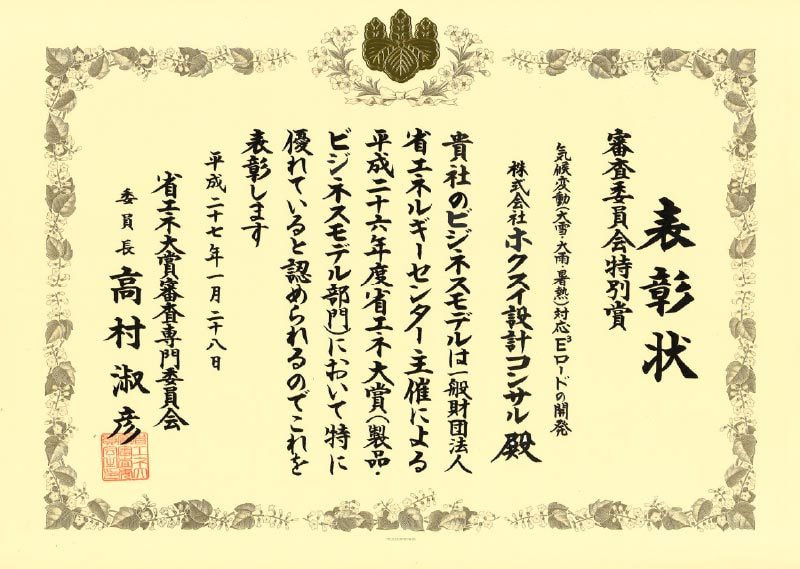 表彰状
審査委員会特別賞
気候変動(大雪・大雨・暑熱)対応E³ロードの開発
株式会社ホクスイ設計コンサル殿
貴社のビジネスモデルは一般財団法人
省エネルギーセンター主催による
平成二十六年度省エネ大賞(製品・
ビジネスモデル部門)において特に
優れていると認められるのでこれを
表彰します
平成二十七年一月二十八日
省エネ大賞審査専門委員会
委員長 高村淑彦